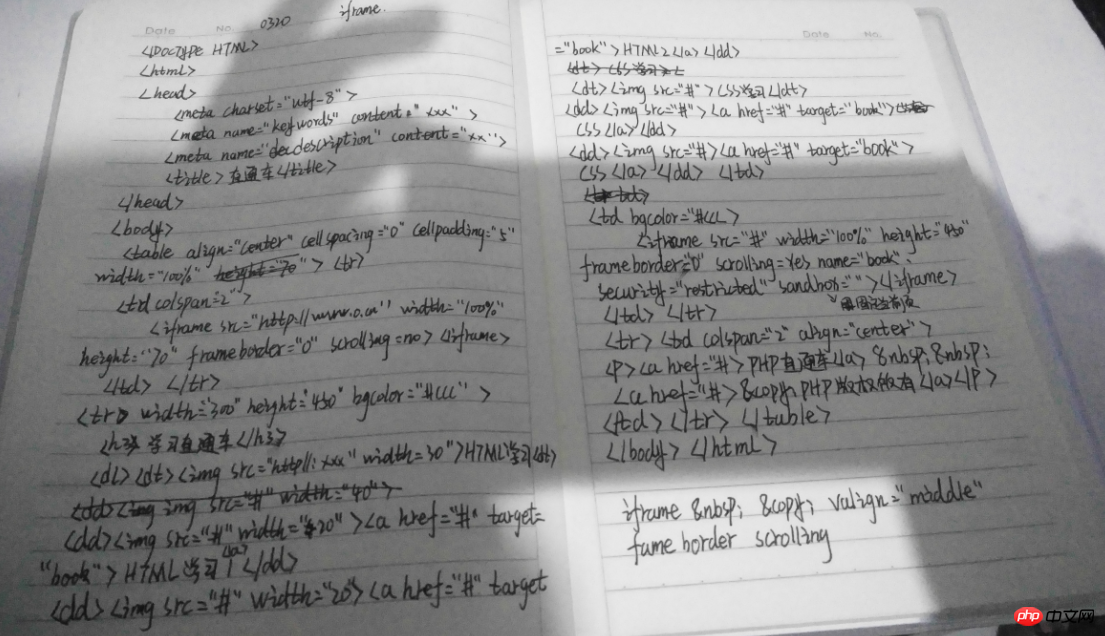 Date No. 0320 iframe.
<!DOCTYPE HTML>
<html>
<head>
<meta charset="utf-8">
<meta name="keywords" content="xxx">
<meta name="description" content="xx">
<title>直通车</title>
</head>
<body>
<table align="center" cellspacing="0" cellpadding="5"
width="100%" height="70"> <tr>
<td colspan="2">
<iframe src="http://www.o.cn" width="100%"
height="70" frameborder="0" scrolling=no></iframe>
</td> </tr>
<tr> width="300" height="450" bgcolor="#ccc">
<h3> 学习直通车</h3>
<dl><dt><img src="http//:xxx" width=30">HTML学习<dt>
<dd><img img src="#" width="40">
<dd><img src="#" width="20"><a href="#" target=
"book">HTML学习1</a></dd>
<dd><img src="#" width="20"><a href="#" target
Date No.
="book">HTML2</a></dd>
<dt><css学习
<dt><img src="#">CSS学习</dt>
<dd><img src="#"><a href="#" target="book">
CSS</a></dd>
<dd><img src="#><a href="#" target="book">
CSS</a></dd></td>
<td bgcolor="#CCC>
<iframe src="#" width="100%" height="450"
frameborder="0" scrolling=Yes name="book"
security="restricted" sandbox=""></iframe>
</td></tr>
<tr><td colspan="2" align="center">
<p><a href="#>PHP直通车</a> &nbsp;&nbsp;
<a href="#>&copy;PHP版权所有</a></p>
</td></tr></table>
</body></html>
iframe &nbsp; &copy; valign="middle"
fame border scrolling
php 中文网